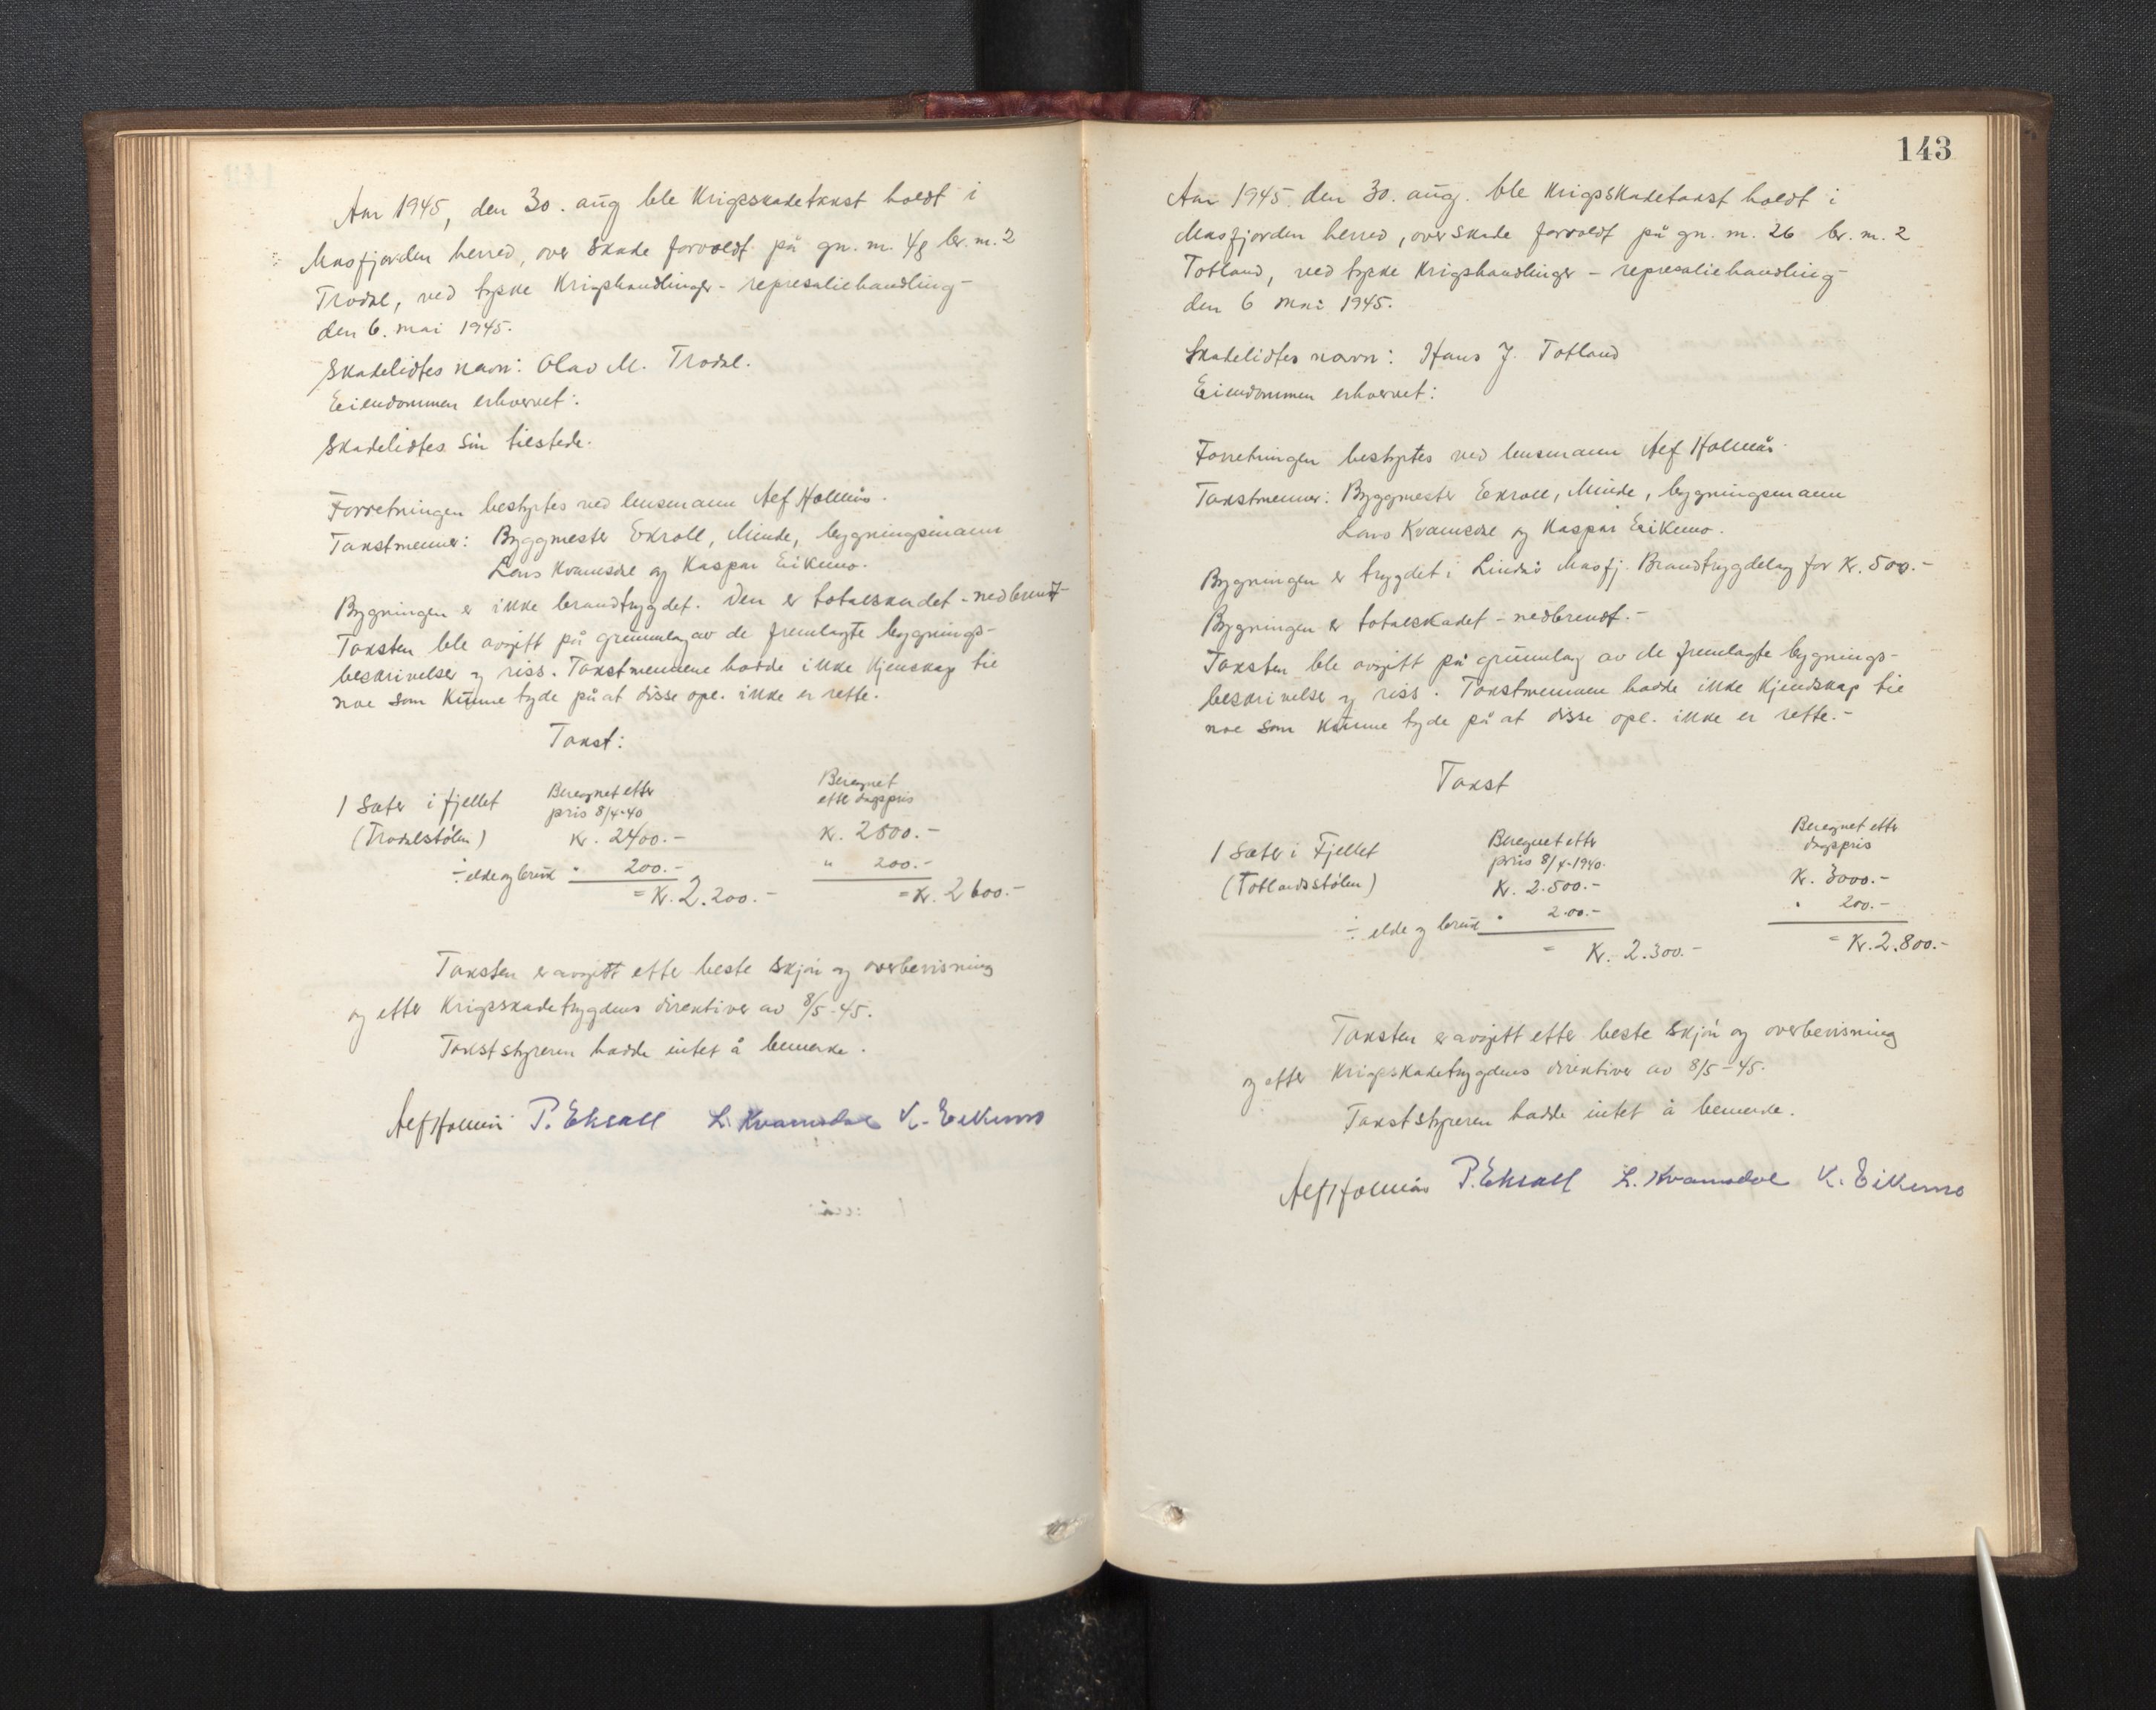 Aar 1945, den 30. aug ble Krigsskadetakst holdt i
Masfjorden herred, over skade forvoldt på gn. m. 48 br. m. 2
Trodal, ved tyske Krigshandlinger - represaliehandling -
den 6. mai 1945.
Skadelidtes navn: Olav M. Trodal.
Eiendommen erhvervet:
Skadelidtes sin tilstede.
Forretningen bestyrtes ved lensmann Alf Holmås.
Takstmenner: Byggmester Ekroll, Minde, bygningsmann
Lars Kvamsdal og Kaspar Eikemo.
Bygningen er ikke brandtrygdet. Den er totalskadet - nedbrendt
Taksten ble avgitt på grunnlag av de fremlagte bygnings-
beskrivelser og riss. Takstmennene hadde ikke kjenskap til
noe som kunne tyde på at disse opl. ikke er rette.
Takst:
1 Sæter i fjellet
(Trodalstølen)
Beregnet etter
pris 8/4-40
Kr. 2400.-
Beregnet
etter dagspris
Kr. 2800.-
÷ elde og bruk " 200.- " 200.-
= Kr. 2.200.- = Kr. 2600.-
Taksten er avgitt etter beste skjøn og overbevisning
og etter Krigsskadetrygdens direktiver av 8/5-45.
Takststyreren hadde intet å bemerke.
Alf Holmås P. Ekroll L. Kvamsdal K. Eikemo
143
Aar 1945. den 30. aug. ble Krigsskadetakst holdt i
Masfjorden herred, over skade forvoldt på gn. m. 26 br. m. 2
Totland, ved tyske Krigshandlinger - represaliehandling -
den 6 mai 1945.
Skadelidtes navn: Hans J. Totland
Eiendommen erhvervet:
Forretningen bestyrtes ved lensmann Alf Holmås.
Takstmenner: Byggmester Ekroll, Minde, bygningsmann
Lars Kvamsdal og Kaspar Eikemo.
Bygningen er trygdet i Lindås Masfj. Brandtrygdelag for Kr. 500.-
Bygningen er totalskadet - nedbrendt.-
Taksten ble avgitt på grunnlag av de fremlagte bygnings-
beskrivelse og riss. Takstmennene hadde ikke kjendskap til
noe som kunne tyde på at disse opl. ikke er rette.-
Takst
1 Sæter i Fjellet
(Totlandsstølen)
Beregnet etter
pris 8/4-1940.
Kr. 2.500.-
Beregnet etter
dagspris
Kr. 3000.-
÷ elde og bruk " 200.- " 200.-
= Kr. 2.300.- = Kr. 2.800.-
Taksten er avgitt etter beste skjøn og overbevisning
og etter Krigsskadetrygdens direktiver av 8/5-45.
Takststyreren hadde intet å bemerke.
Alf Holmås P. Ekroll L. Kvamsdal K. Eikemo